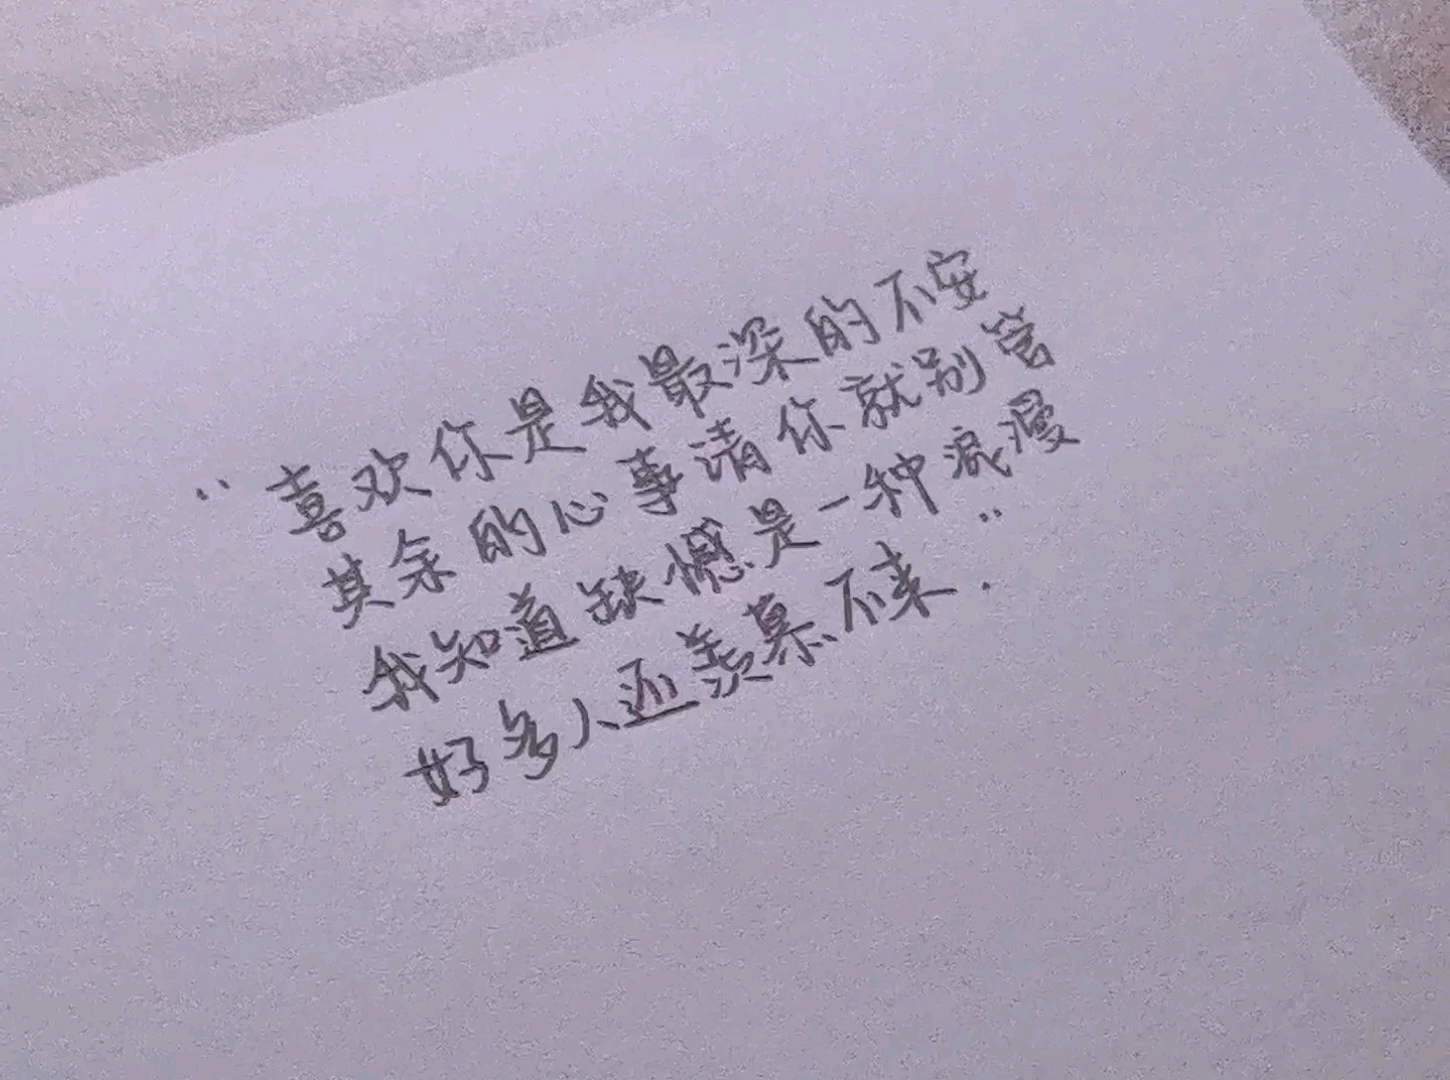 “喜欢你是我最深的不安
其余的心事请你就别管
我知道缺憾是一种浪漫
好多人还羡慕不来.”